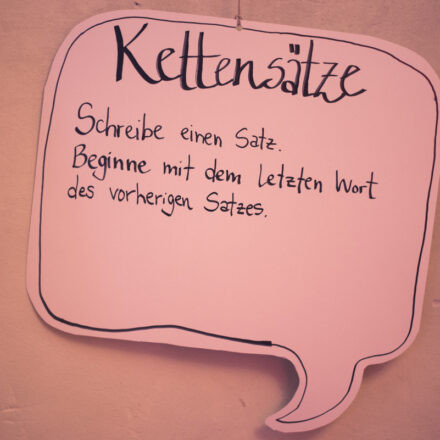 Kettensätze
Schreibe einen Satz.
Beginne mit dem letzten Wort
des vorherigen Satzes.